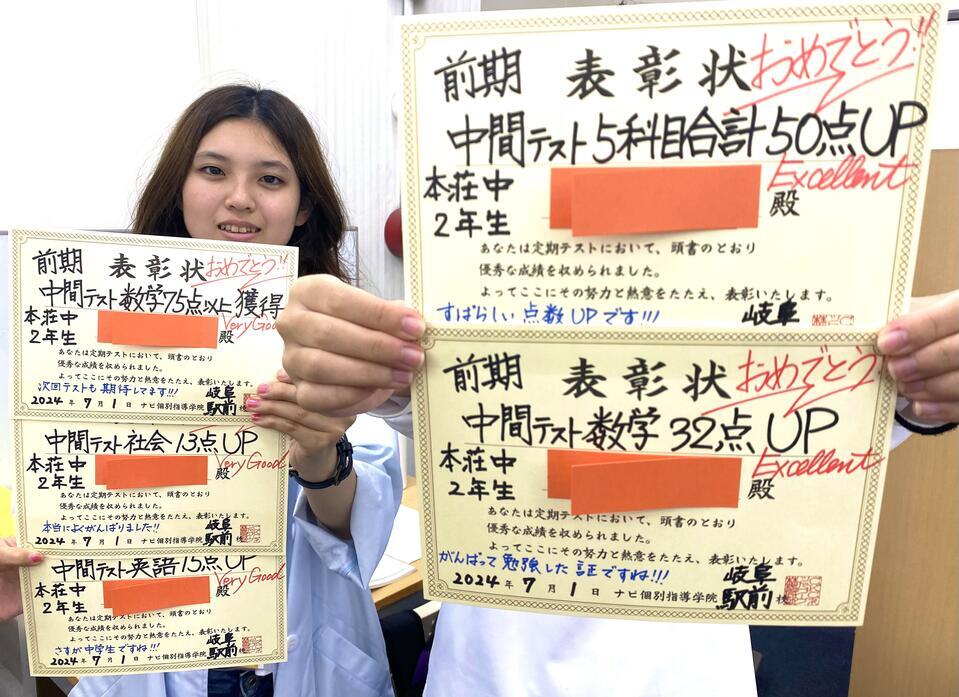 前期 表彰状 おめでとう!!
中間テスト5科目合計50点UP
Excellent
本荘中
2年生 殿
あなたは定期テストにおいて、頭書のとおり
優秀な成績を収められました。
よってここにその努力と熱意をたたえ、表彰いたします。
すばらしい点数UPです!!! 岐阜
前期 表彰状 おめでとう!!
中間テスト数学32点UP
Excellent
本荘中
2年生 殿
あなたは定期テストにおいて、頭書のとおり
優秀な成績を収められました。
よってここにその努力と熱意をたたえ、表彰いたします。
がんばって勉強した証ですね!!! 岐阜
2024年7月1日 ナビ個別指導学院 駅前校
前期 表彰状 おめでとう!!
中間テスト数学75点以上獲得
Very Good
本荘中
2年生 殿
あなたは定期テストにおいて、頭書のとおり
優秀な成績を収められました。
よってここにその努力と熱意をたたえ、表彰いたします。
次回テストも期待してます!!! 岐阜
2024年7月1日 ナビ個別指導学院 駅前校
中間テスト社会13点UP
Very Good
本荘中
2年生 殿
あなたは定期テストにおいて、頭書のとおり
優秀な成績を収められました。
よってここにその努力と熱意をたたえ、表彰いたします。
本当によくがんばりました!! 岐阜
2024年7月1日 ナビ個別指導学院 駅前校
中間テスト英語15点UP
Very Good
本荘中
2年生 殿
あなたは定期テストにおいて、頭書のとおり
優秀な成績を収められました。
よってここにその努力と熱意をたたえ、表彰いたします。
さすが中学生ですね!!! 岐阜
2024年7月1日 ナビ個別指導学院 駅前校